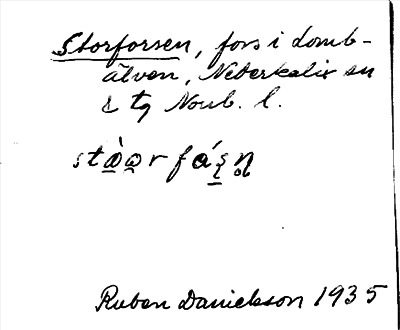 Storforsen, fors i Lomb-
älven, Nederkalix sn
& tg Norrb. l.
Ruben Danielsson 1935